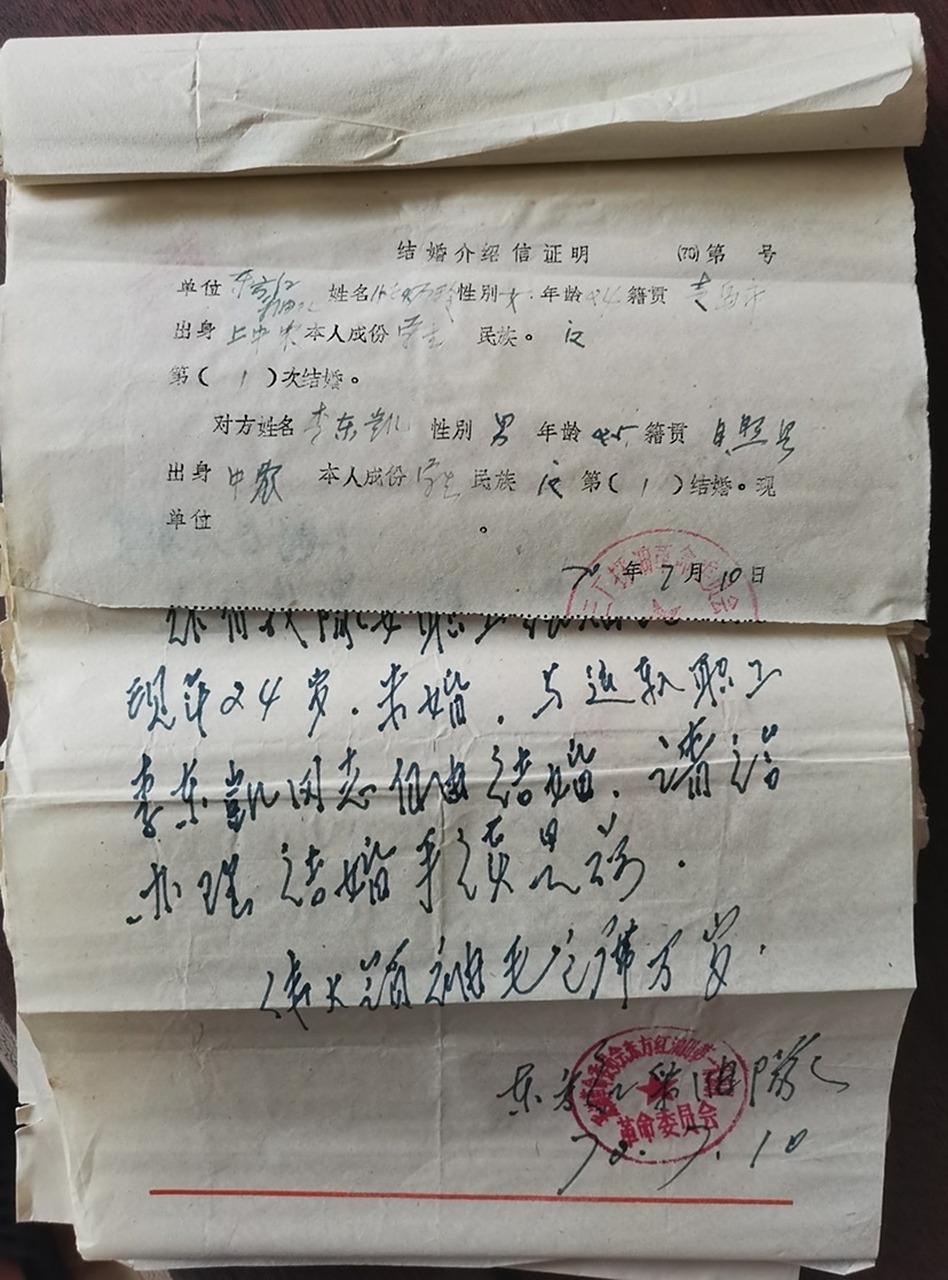 结婚介绍信证明 (70)第 号
单位 东方红 姓名 性别女 年龄24籍贯
出身上中农本人成份学生 民族。汉
第(1)次结婚。
对方姓名李东凯 性别 男 年龄 45 籍贯 日照县
出身 中农 本人成份学生 民族 汉 第(1)结婚。现
单位 。
70年7月10日
现年24岁.未婚.与连队职工
李东凯同志自由结婚.请给
办理结婚手续是荷.
伟大领袖毛主席万岁.
东方红采油队
革命委员会
70.7.10